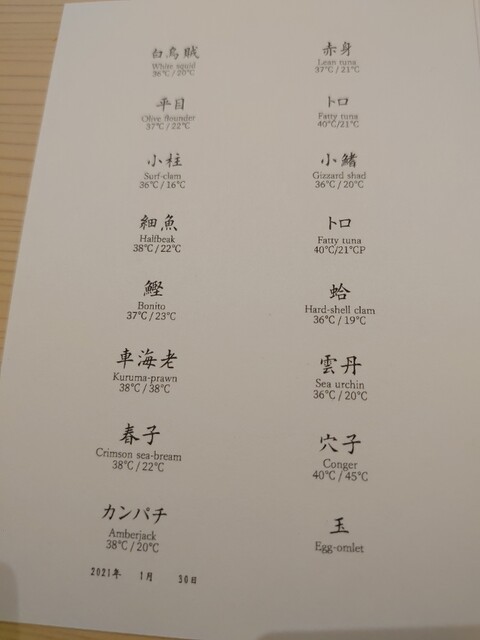 白烏賊
White squid
36℃/20℃
平目
Olive flounder
37℃/22℃
小柱
Surf-clam
36℃/16℃
細魚
Halfbeak
38℃/22℃
鰹
Bonito
37℃/23℃
車海老
Kuruma-prawn
38℃/38℃
春子
Crimson sea-bream
38℃/22℃
カンパチ
Amberjack
38℃/20℃
2021年 1月 30日
赤身
Lean tuna
37℃/21℃
トロ
Fatty tuna
40℃/21℃
小鰭
Gizzard shad
36℃/20℃
トロ
Fatty tuna
40℃/21℃P
蛤
Hard-shell clam
36℃/19℃
雲丹
Sea urchin
36℃/20℃
穴子
Conger
40℃/45℃
玉
Egg-omlet